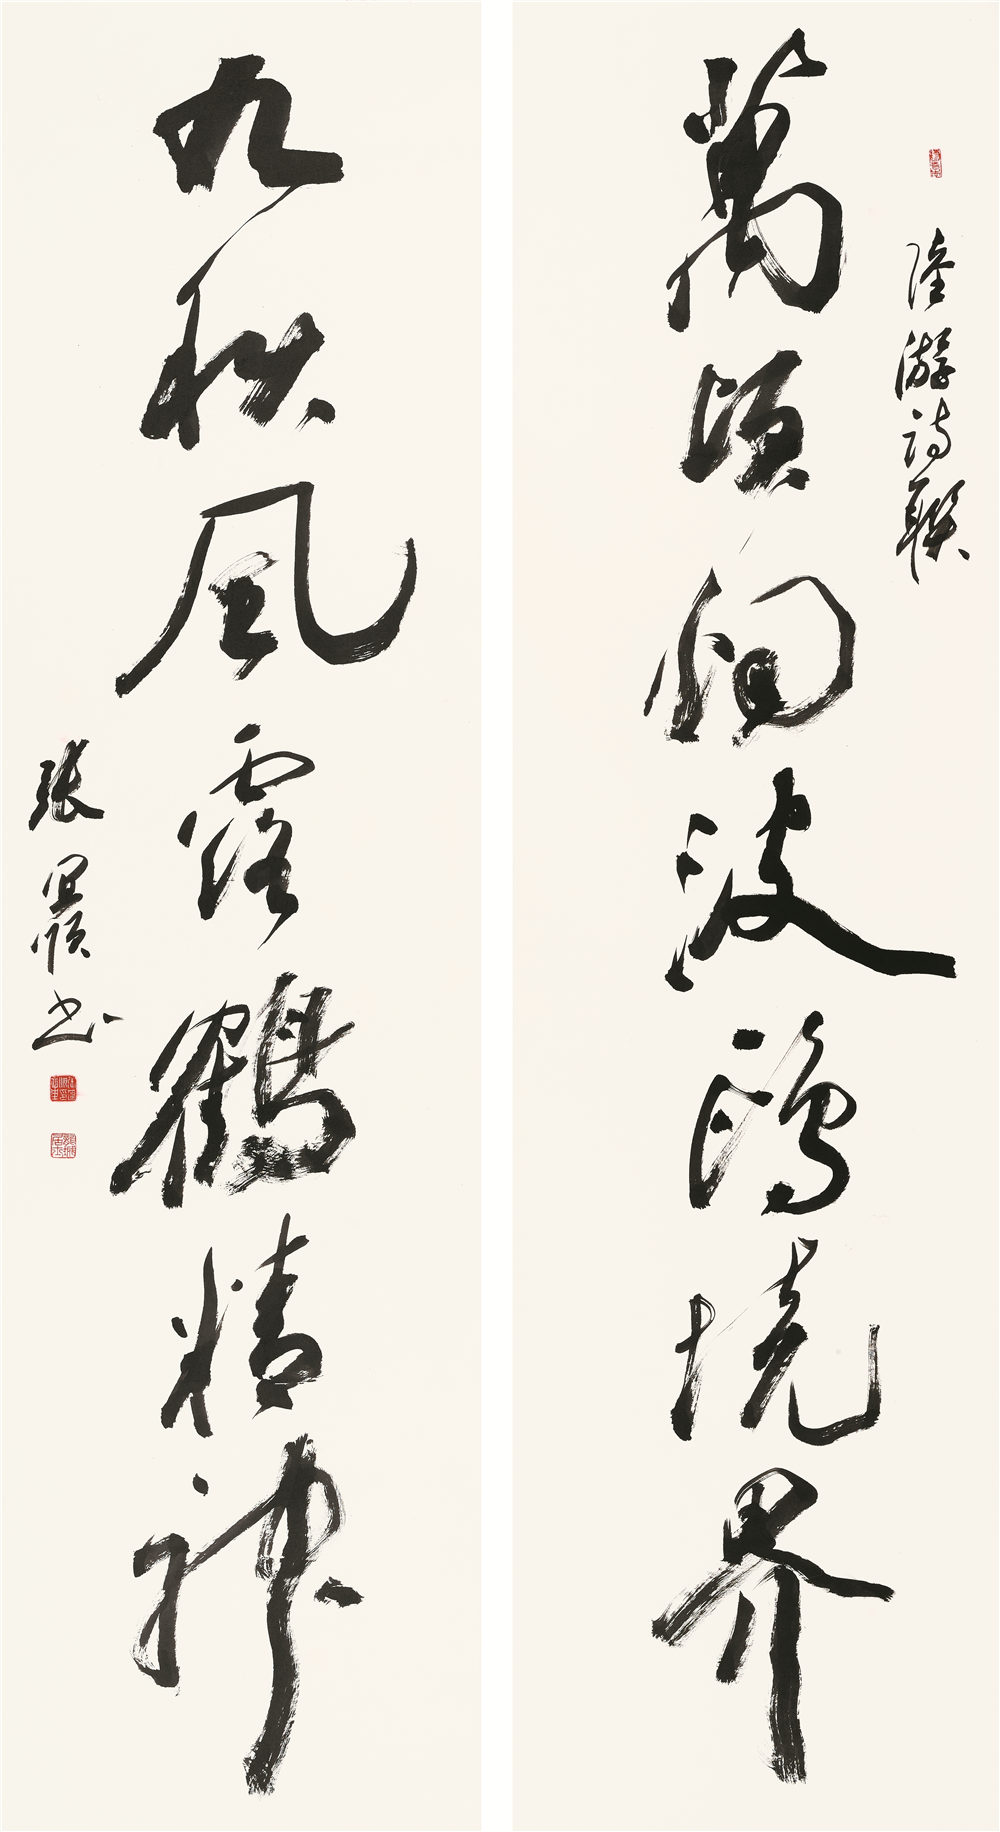 陸游詩聯
萬頃烟波鷗境界
九秋風露鶴精神
張 書